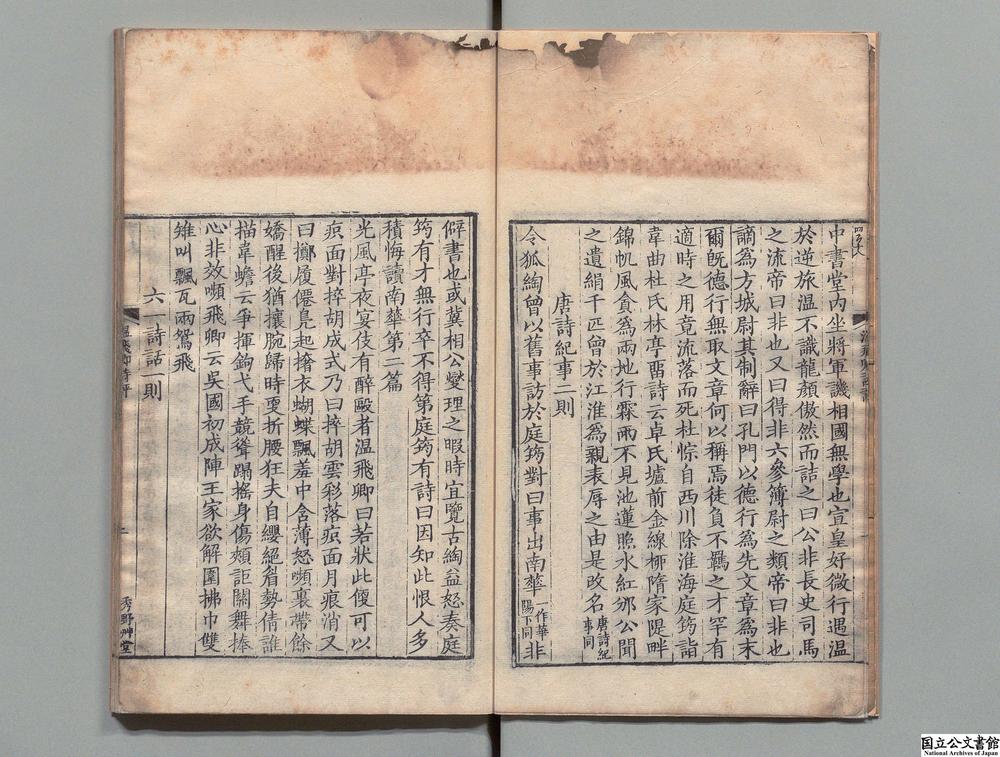 中書堂內坐將軍譏相國無學也宣皇好微行遇温
於逆旅温不識龍顏傲然而詰之曰公非長史司馬
之流帝曰非也又曰得非六參簿尉之類帝曰非也
謫爲方城尉其制辭曰孔門以德行爲先文章爲末
爾既德行無取文章何以稱焉徒負不羈之才罕有
適時之用竟流落而死杜悰自西川除淮海庭筠詣
韋曲杜氏林亭畱詩云卓氏壚前金線栁隋家隄畔
錦帆風貪爲兩地行霖雨不見池蓮照水紅邠公聞
之遺絹千匹曾於江淮爲親表辱之由是改名唐詩紀事同
唐詩紀事二則
令狐綯曾以舊事訪於庭筠對曰事出南華一作華陽下同非
僻書也或冀相公燮理之暇時宜覽古綯益怒奏庭
筠有才無行卒不得第庭筠有詩曰因知此恨人多
積悔讀南華第二篇
光風亭夜宴伎有醉毆者温飛卿曰若狀此便可以
疻面對捽胡成式乃曰捽胡雲彩落疻面月痕消又
曰擲履僊鳧起撦衣蝴蝶飄羞中含薄怒嚬裏帶餘
嬌醒後猶攘腕歸時更折腰狂夫自纓絕眉勢倩誰
描韋蟾云爭揮鉤弋手競聳踏搖身傷頰詎關舞捧
心非效嚬飛卿云吳國初成陣王家欲解圍拂巾雙
雉叫飄瓦兩鴛飛
六一詩話一則
温飛卿詩評
秀野艸堂
国立公文書館
National Archives of Japan